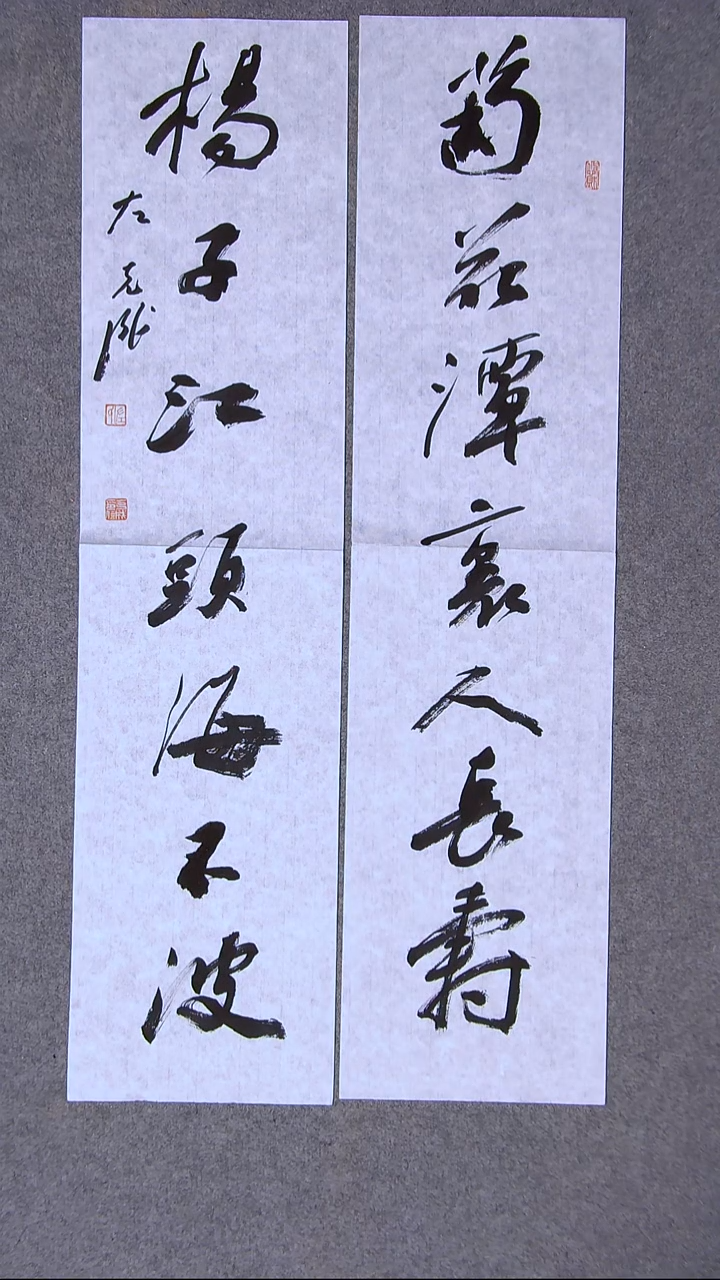 菊花潭裏人長壽
楊子江頭海不波
左克成